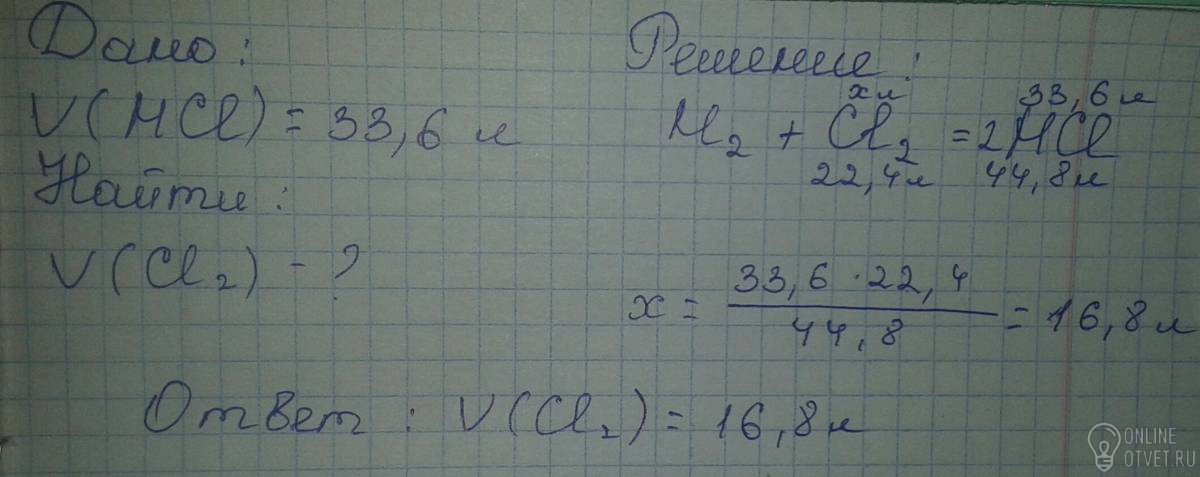 Дано:
V(HCl) = 33,6 л
Найти:
V(Cl₂) - ?
Решение:
x л 33,6 л
H₂ + Cl₂ = 2HCl
22,4 л 44,8 л
x = 33,6 · 22,4 / 44,8 = 16,8 л
Ответ: V(Cl₂) = 16,8 л
ONLINE
OTVET.RU